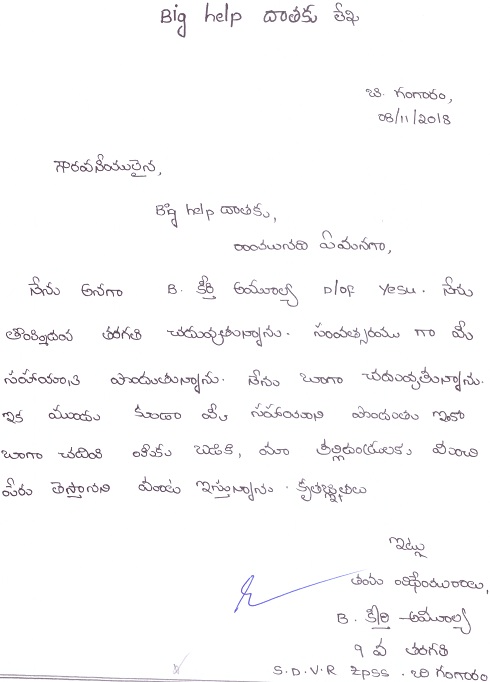 Big help దాతకు లేఖ
బి. గంగారం,
08/11/2018
గౌరవనీయులైన,
Big help దాతకు,
రాయునది ఏమనగా,
నేను అనగా B. కీర్తి అమూల్య D/of Yesu. నేను
తొమ్మిదవ తరగతి చదువుతున్నాను. సంవత్సరము గా మీ
సహాయంని పొందుతున్నాను. నేను బాగా చదువుతున్నాను.
ఇక ముందు కుడా మీ సహాయంని పొందుతు ఇంకా
బాగా చదివి మీకు బడికి, మా తల్లిదండ్రులకు మంచి
పేరు తెస్తానని మాట ఇస్తున్నాను. కృతజ్ఞతలు
ఇట్లు
తమ విధేయురాలు,
B. కీర్తి అమూల్య
9 వ తరగతి
S.D.V.R ZPSS. బి గంగారం